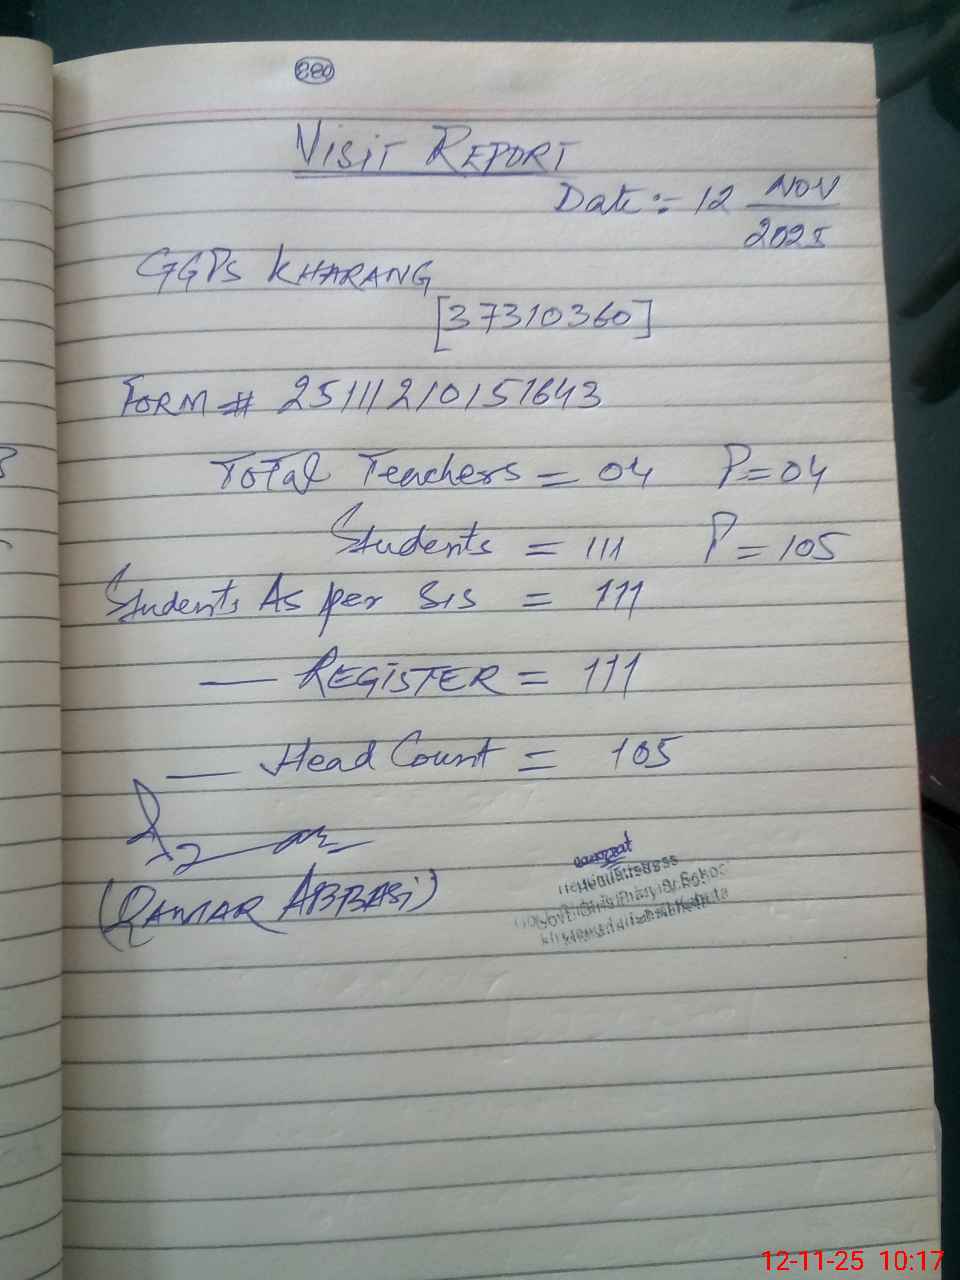 VISIT REPORT
Date :- 12 NOV
2025
GGPS KHARANG
[37310360]
FORM # 25111210151643
Total Teachers = 04 P=04
Students = 111 P=105
Students As per SIS = 111
— REGISTER = 111
— Head Count = 105
(QAMAR ABBASI)
12-11-25 10:17